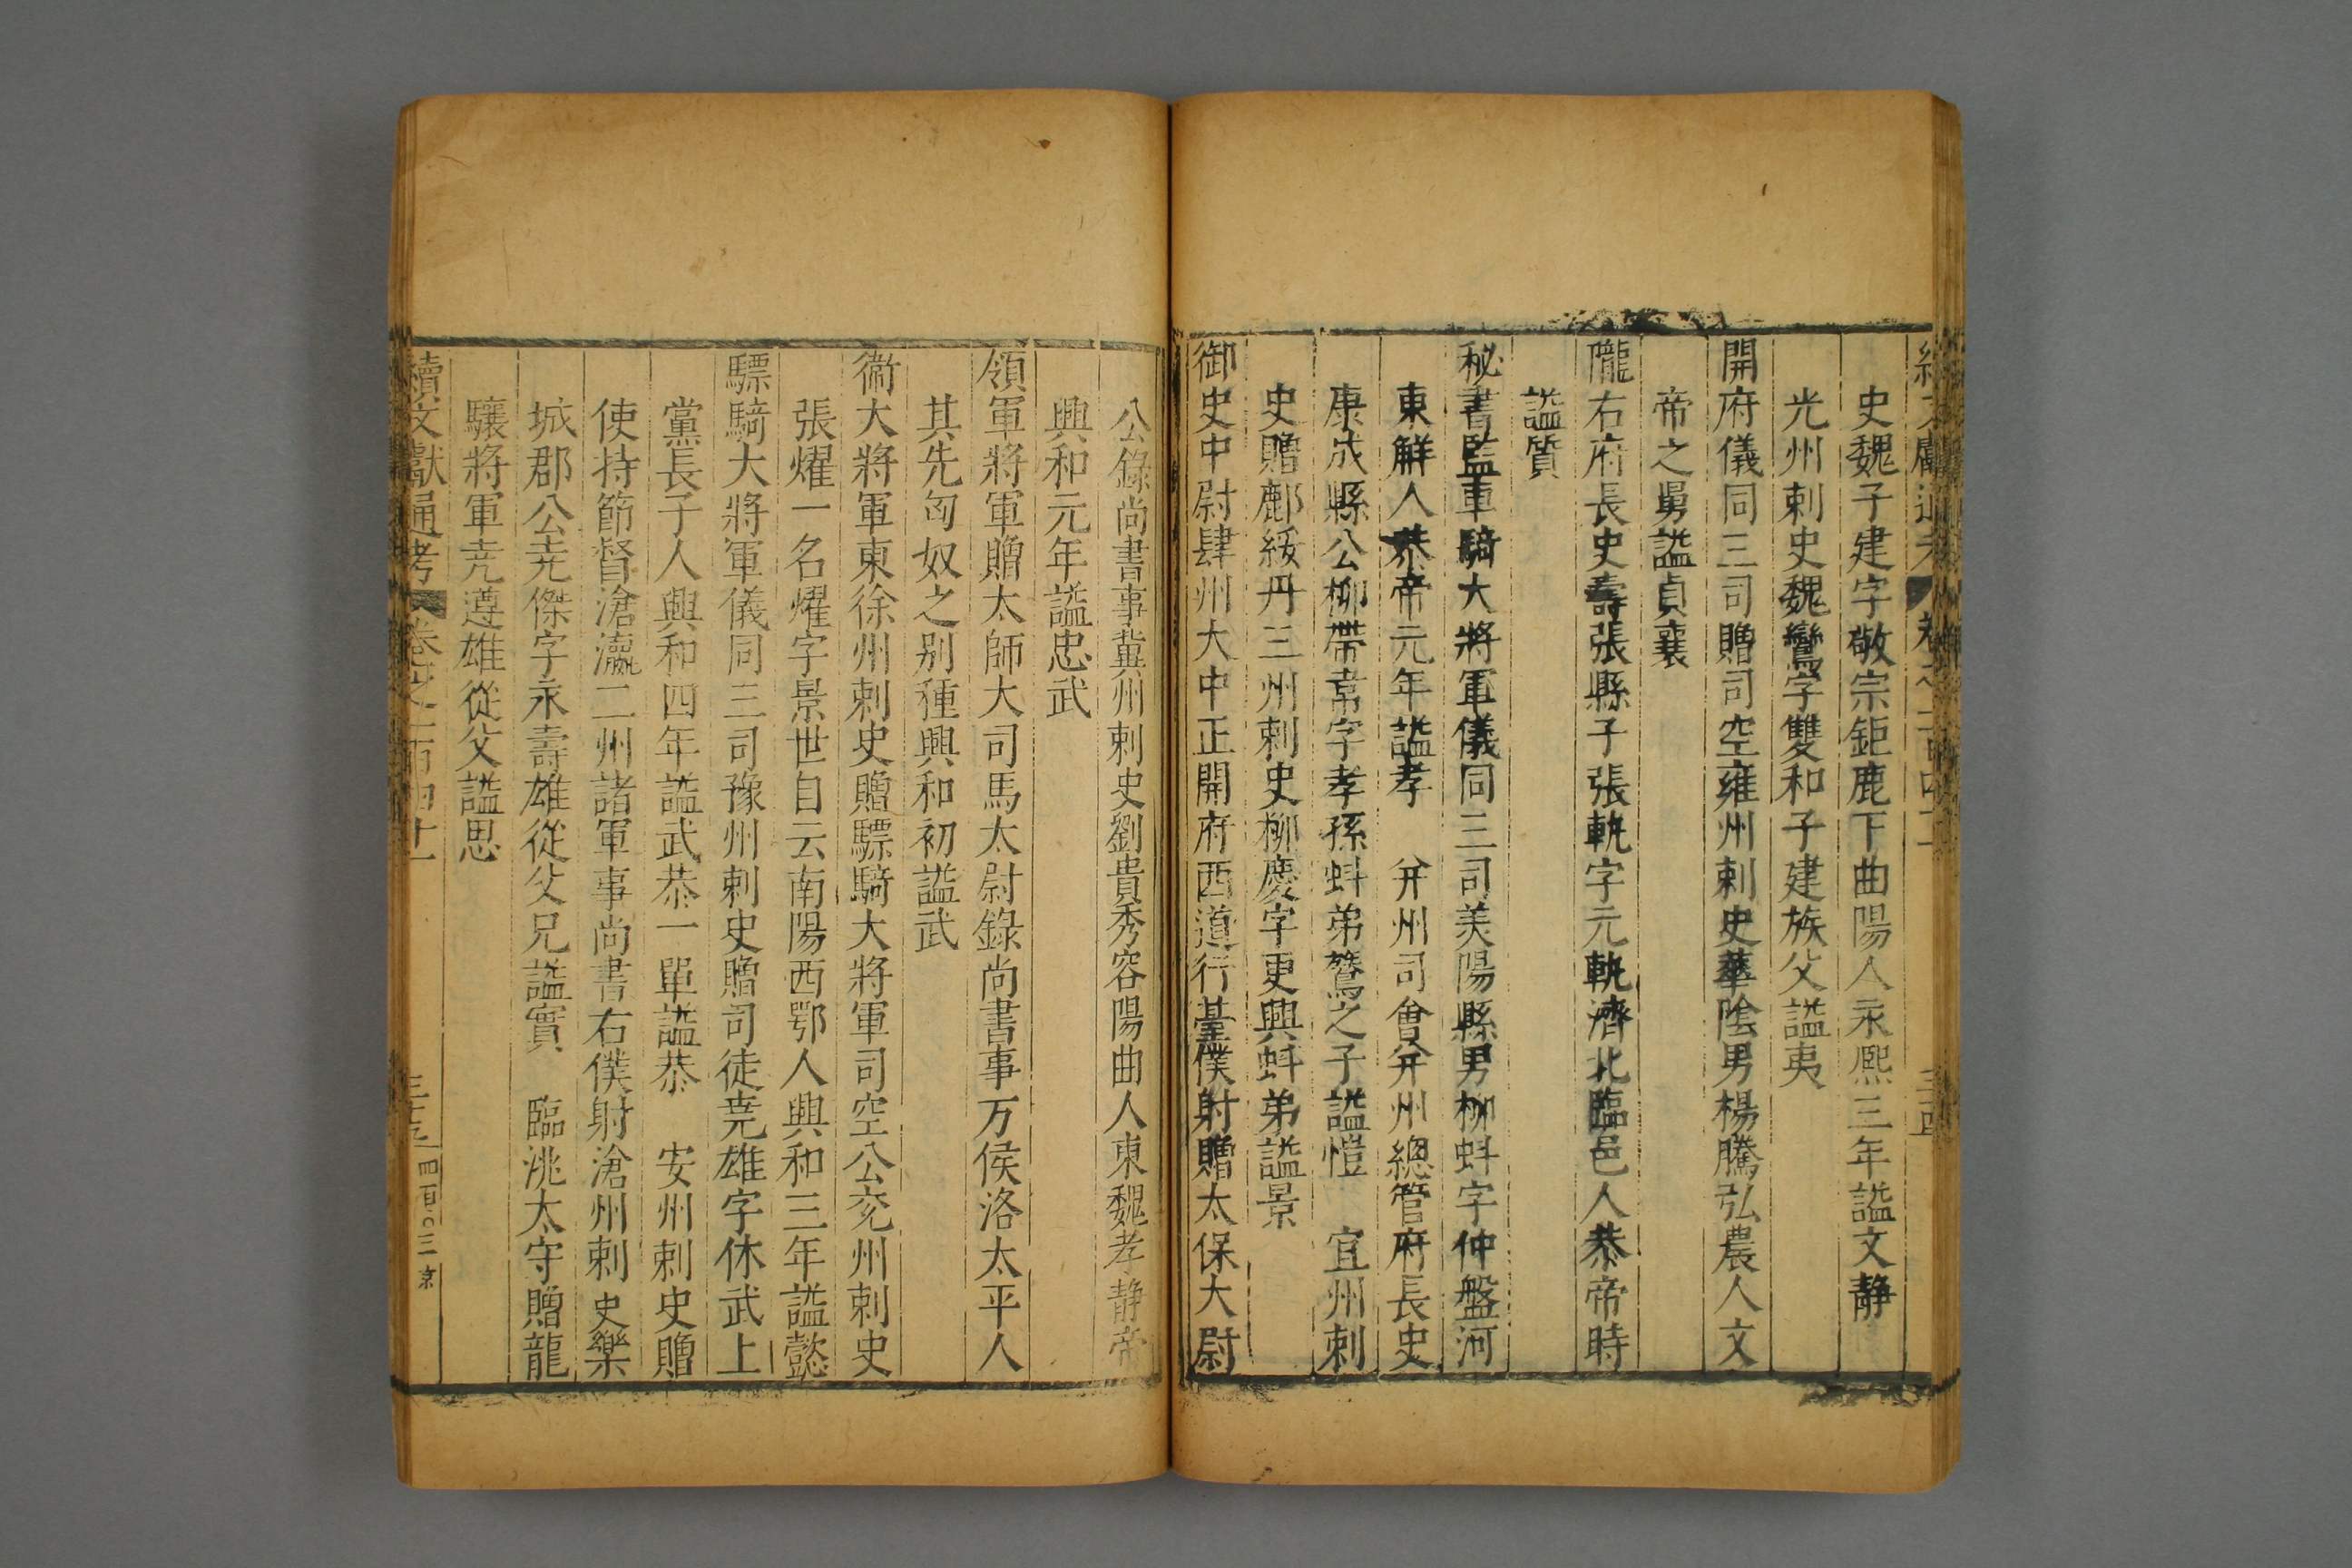 史魏子建字敬宗鉅鹿下曲陽人永熈三年謚文静
光州刺史魏鸞字雙和子建族父謚夷
開府儀同三司贈司空雍州刺史華陰男楊騰弘農人文
帝之舅謚貞襄
隴右府長史壽張縣子張軌字元軌濟北臨邑人恭帝時
謚質
秘書監車騎大將軍儀同三司美陽縣男柳蚪字仲盤河
東解人恭帝元年謚孝　并州司會并州總管府長史
康成縣公柳帶韋字孝孫蚪弟鷟之子謚愷　宜州刺
史贈鄜綏丹三州刺史柳慶字更興蚪弟謚景
御史中尉肆州大中正開府西道行臺僕射贈太保大尉
公錄尚書事冀州刺史劉貴秀容陽曲人東魏孝静帝
興和元年謚忠武
領軍將軍贈太師大司馬太尉錄尚書事万侯洛太平人
其先匈奴之别種興和初謚武
衞大將軍東徐州刺史贈驃騎大將軍司空公兖州刺史
張燿一名燿字景世自云南陽西鄂人興和三年謚懿
驃騎大將軍儀同三司豫州刺史贈司徒尭雄字休武上
黨長子人興和四年謚武恭一單謚恭　安州刺史贈
使持節督滄瀛二州諸軍事尚書右僕射滄州刺史樂
城郡公尭傑字永壽雄從父兄謚實　臨洮太守贈龍
驤將軍尭遵雄從父謚思
續文獻通考　卷之一百四十一　三十五　四百〇三　京